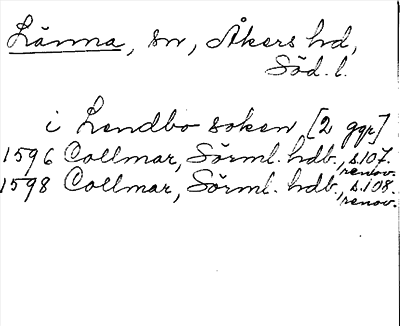 Länna, sn, Åkers hd,
Söd. l.
i Lendbo soken [2 ggr]
1596 Collmar, Sörml. hdb., s. 107.
renov.
1598 Collmar, Sörml. hdb., s. 108.
renov.